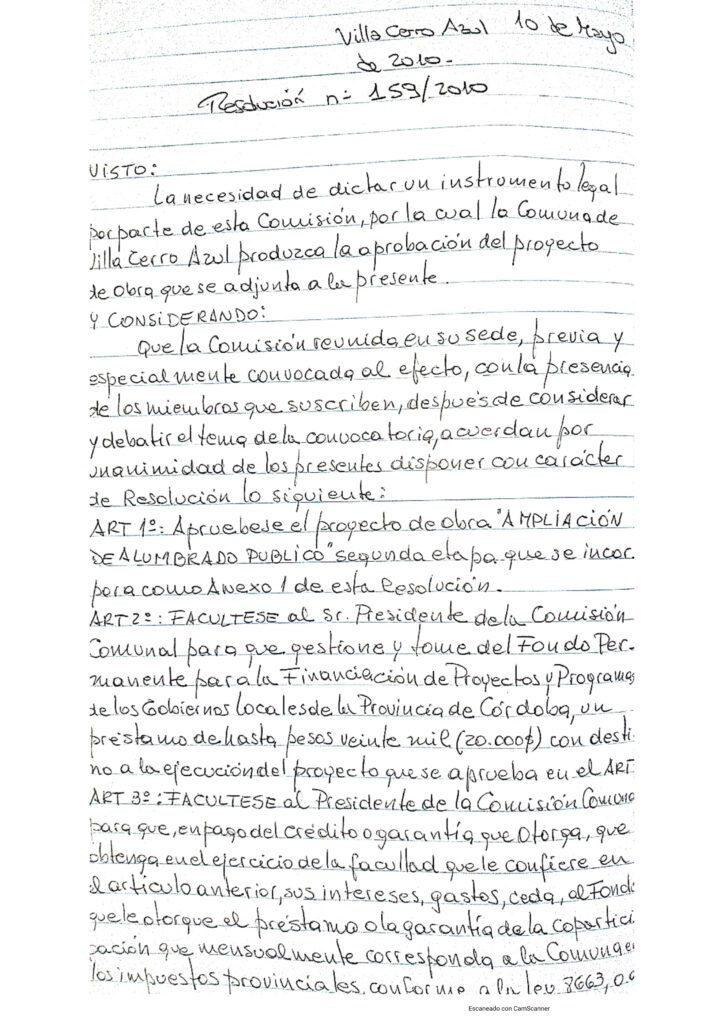 Villa Cerro Azul 10 de Mayo
de 2010.-
Resolución n° 159/2010
VISTO:
La necesidad de dictar un instrumento legal
por parte de esta Comisión, por la cual la Comuna de
Villa Cerro Azul produzca la aprobación del proyecto
de obra que se adjunta a la presente.
Y CONSIDERANDO:
Que la Comisión reunida en su sede, previa y
especialmente convocada al efecto, con la presencia
de los miembros que suscriben, después de considerar
y debatir el tema de la convocatoria, acuerdan por
unanimidad de los presentes disponer con carácter
de Resolución lo siguiente:
ART 1º: Apruebese el proyecto de obra "AMPLIACIÓN
DE ALUMBRADO PUBLICO" segunda etapa que se incor
pora como Anexo 1 de esta Resolución.
ART 2º: FACULTESE al Sr. Presidente de la Comisión
Comunal para que gestione y tome del Fondo Per-
manente para la Financiación de Proyectos y Programas
de los Gobiernos Locales de la Provincia de Córdoba, un
préstamo de hasta pesos veinte mil (20.000$) con desti
no a la ejecución del proyecto que se aprueba en el ART
ART 3º: FACULTESE al Presidente de la Comisión Comuna
para que, en pago del crédito o garantía que otorga, que
obtenga en el ejercicio de la facultad que le confiere en
el artículo anterior, sus intereses, gastos, ceda, al Fondo
que le otorque el préstamo o la garantía de la copartici
pación que mensualmente corresponda a la Comuna en
los impuestos provinciales, conforme a la ley 8663, o.c
Escaneado con CamScanner